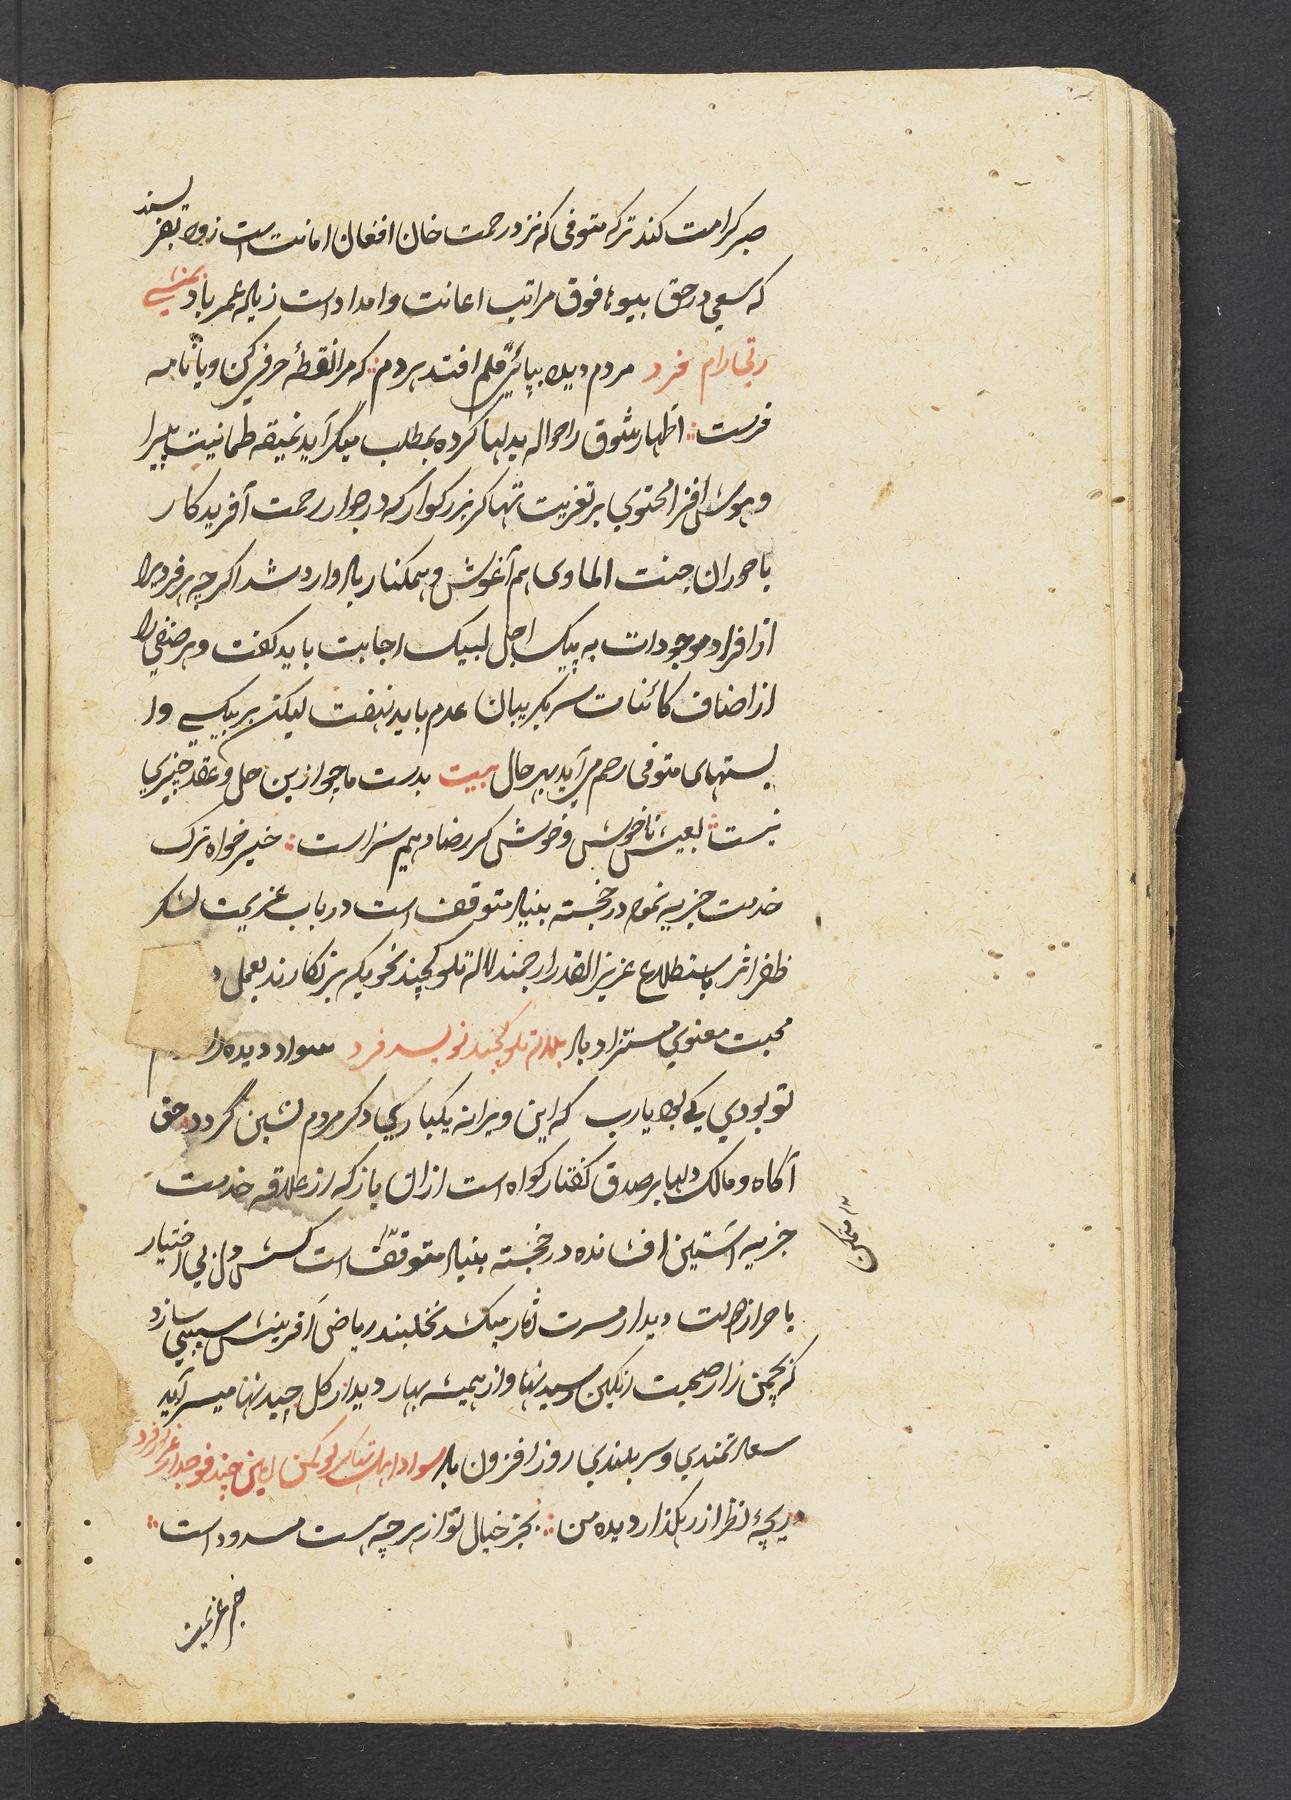 صبر کرامت کند ترکه متوفی که نزد رحمت خان افغان امانت است زود بفرستند
که سعی در حق بیوها فوق مراتب اعانت و امداد است زیاده عمر باد بمنشی
رتجارام فرد مردم دیده بپای قلم افتد هردم که مرا نقطهٔ حرفی کن و با نامه
فرست اظهار شوق را حواله بدلها کرده بمطلب میگراید نمیقه طمانیت پیرا
و هوش افزا محتوی بر تعزیت تهاکر بزرکوار که در جوار رحمت آفریدکار
با حوران جنت الماوی هم آغوش و همکنار باد وارد شد اکرچه هر فردیرا
از افراد موجودات به پیک اجل لبیک اجابت باید کفت و هر صنفی را
از اصناف کائنات سر بکریبان عدم باید نهفت لیکن بر بیکسی وا
بستهای متوفی رحم می آید بهرحال بیت بدست ما چو ازین حل و عقد چیزی
نیست بعیش ناخوش و خوش کر رضا دهیم سزاست خیرخواه ترک
خدمت جزیه نموده در خجسته بنیاد متوقف است در باب عزیمت لشکر
ظفر اثر باستطلاع عزیز القدر ارجمند لاله تلوکچند نحویکه برنکارند بعمل
محبت معنوی مستزاد باد بلاله تلوکچند نویسد فرد سواد دیده را
تو بودی کی بود یارب که این ویرانه یکباری دکر مردم نشین گردد حق
آکاه و مالک دلها بر صدق کفتار کواه است از ان باز که از علاقه خدمت
جزیه آستین افشانده در خجسته بنیاد متوقف است کشش دل بی اختیار
باحراز دولت دیدار مسرت نثار میکشد نخلبند ریاض آفرینش سببی سازد
که بچمن زار صحبت رنکین رسیدنها و از همیشه بهار دیدار کل چیدنها میسر آید
سعادتمندی و سربلندی روز افزون باد
دریچهٔ نظر از رهکذار دیده من بجز خیال تو از هرچه هست مسدود است
جز عزیمت